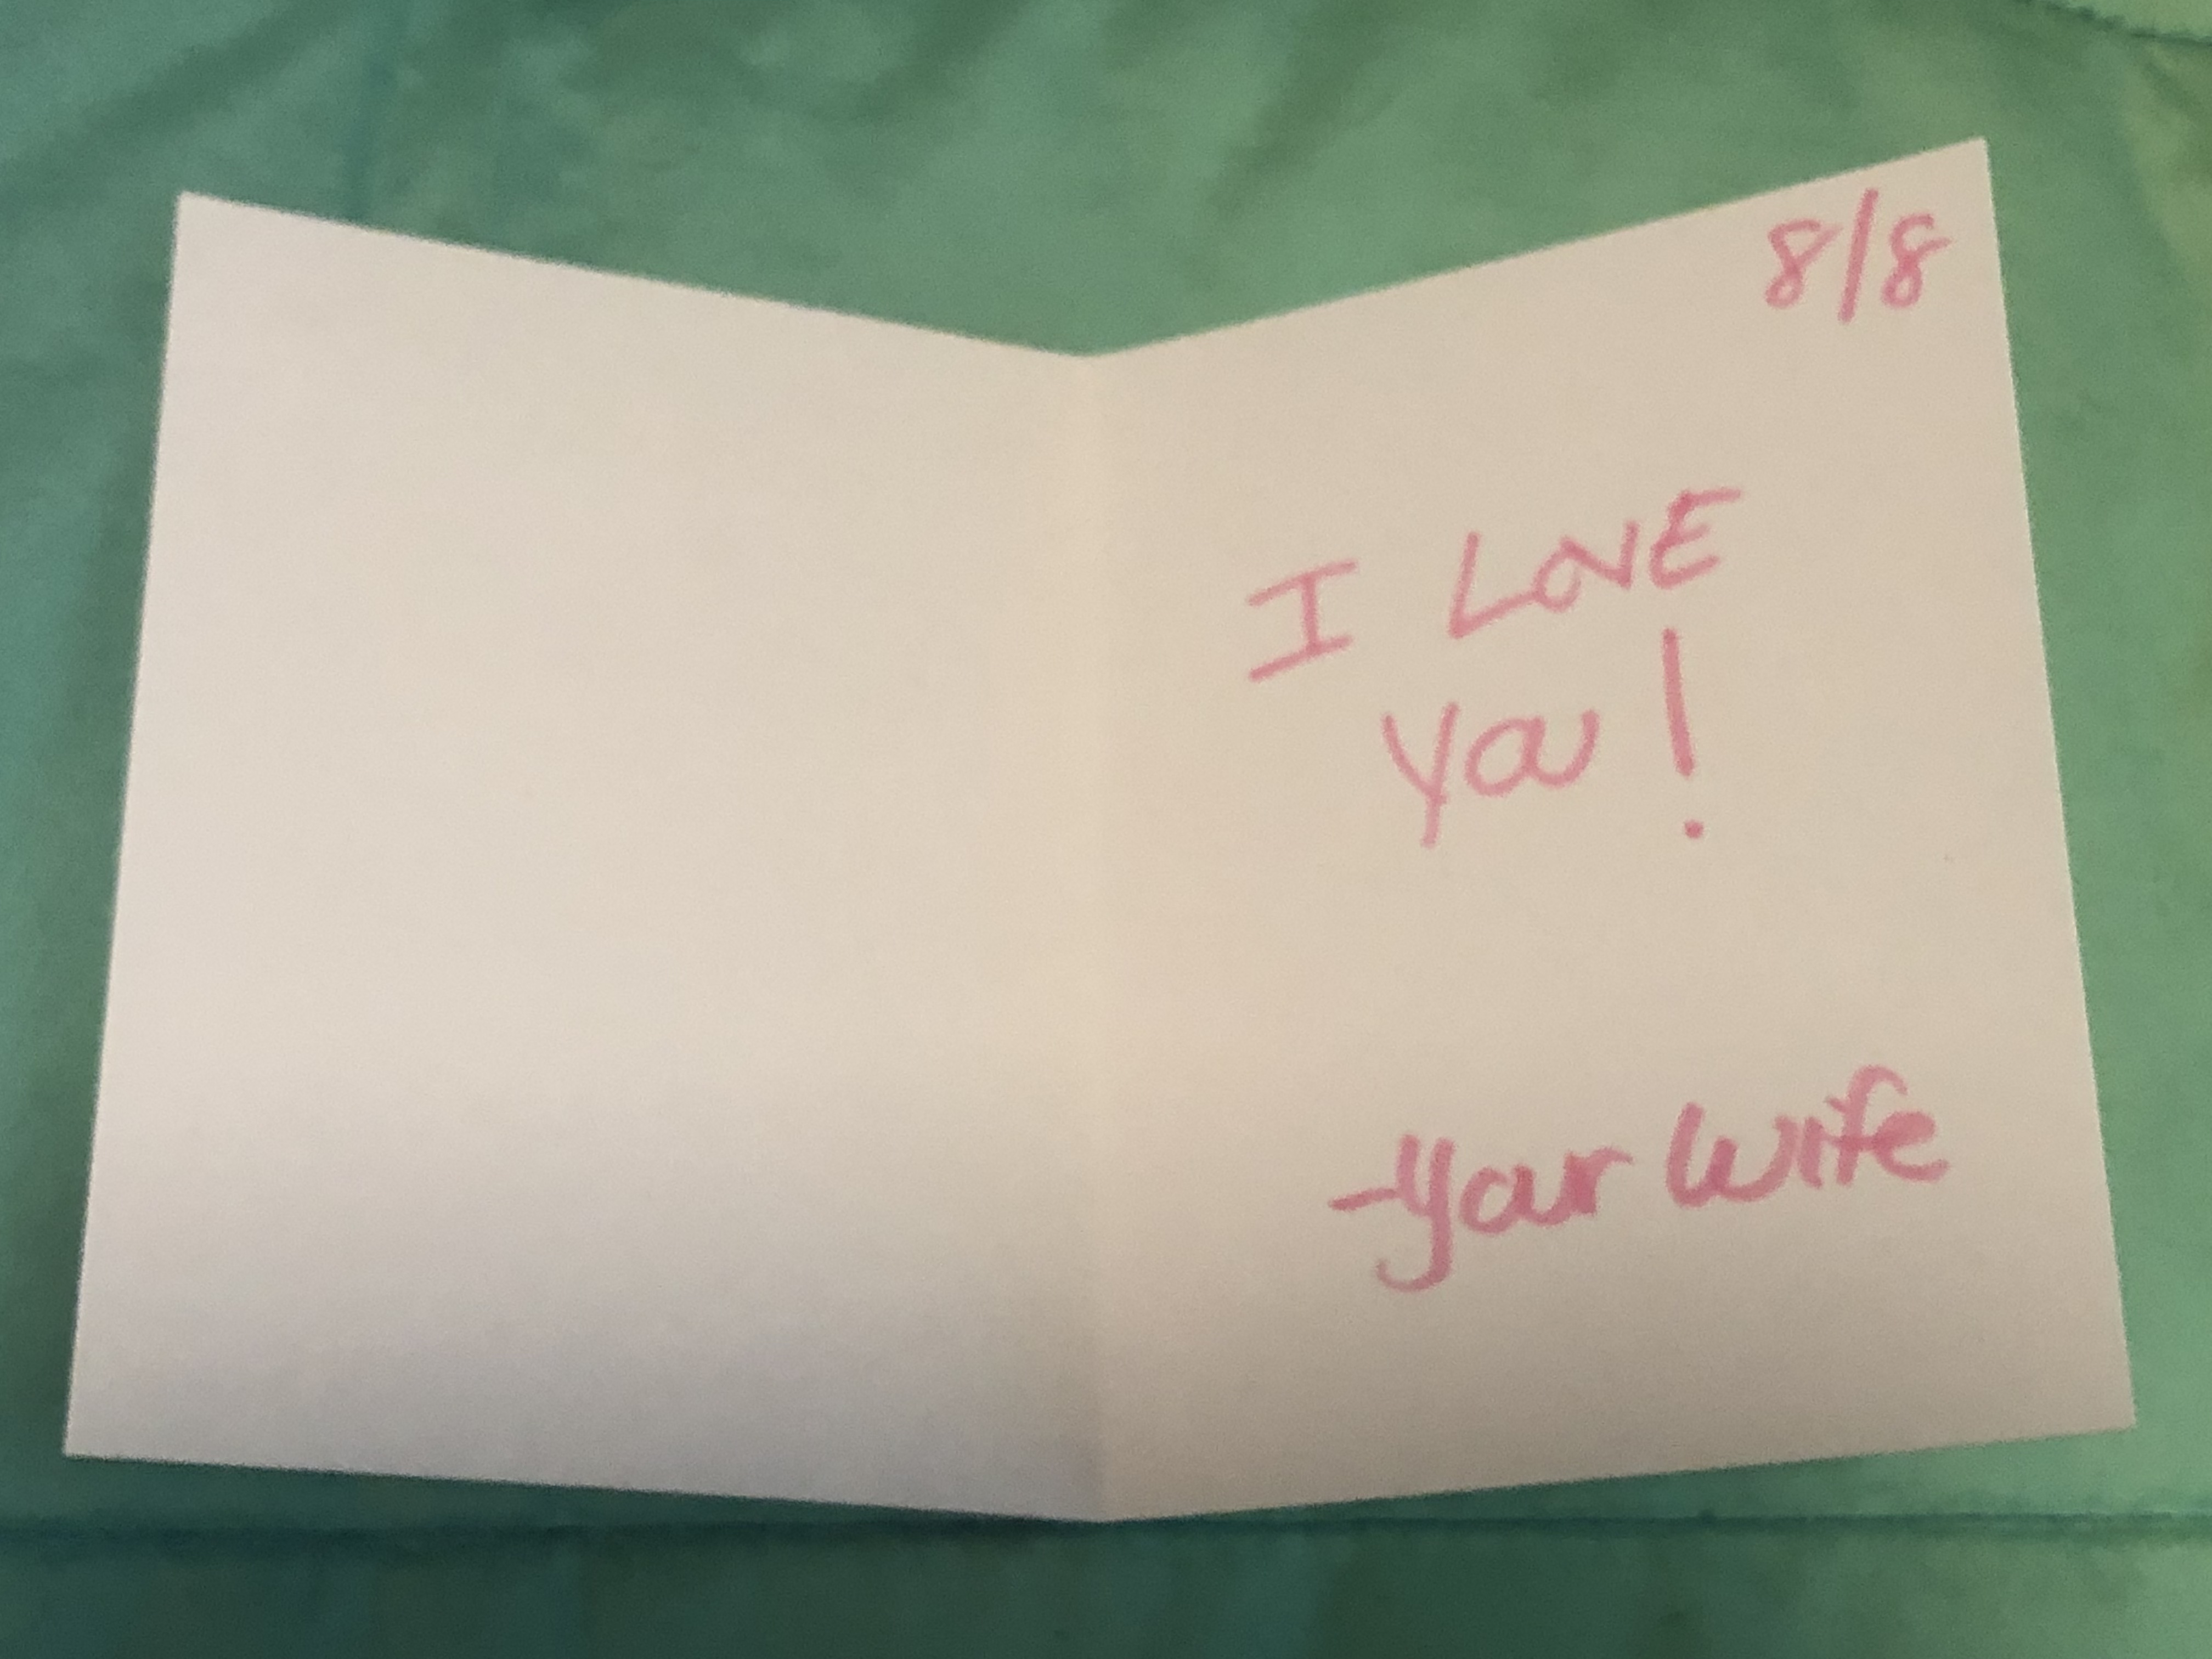 8/8
I LOVE
YOU!
-Your Wife